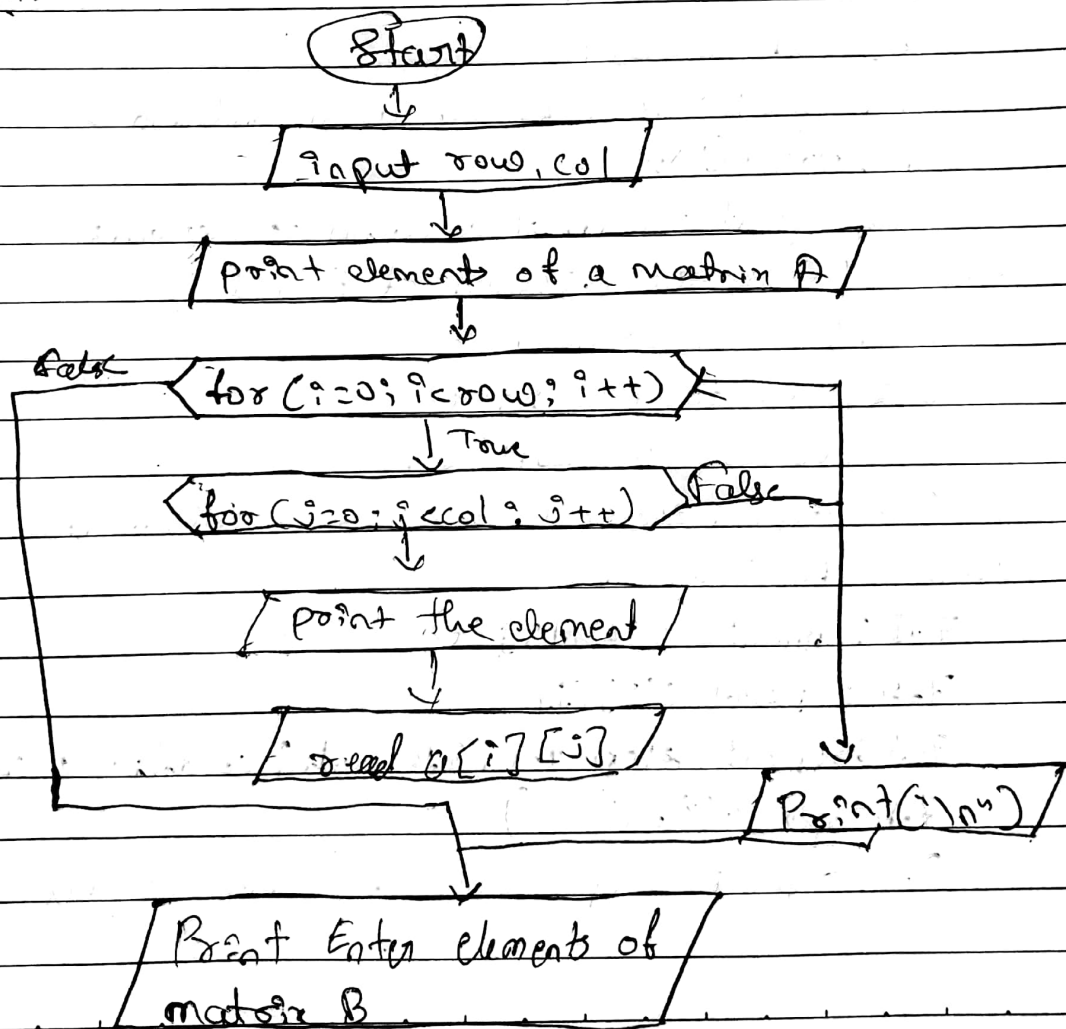 Start
input row, col
print elements of a matrix A
False
for (i=0; i<row; i++)
True
for (j=0; j<col; j++)
False
print the element
read a[i][j]
Print("\n")
Print Enter elements of
matrix B